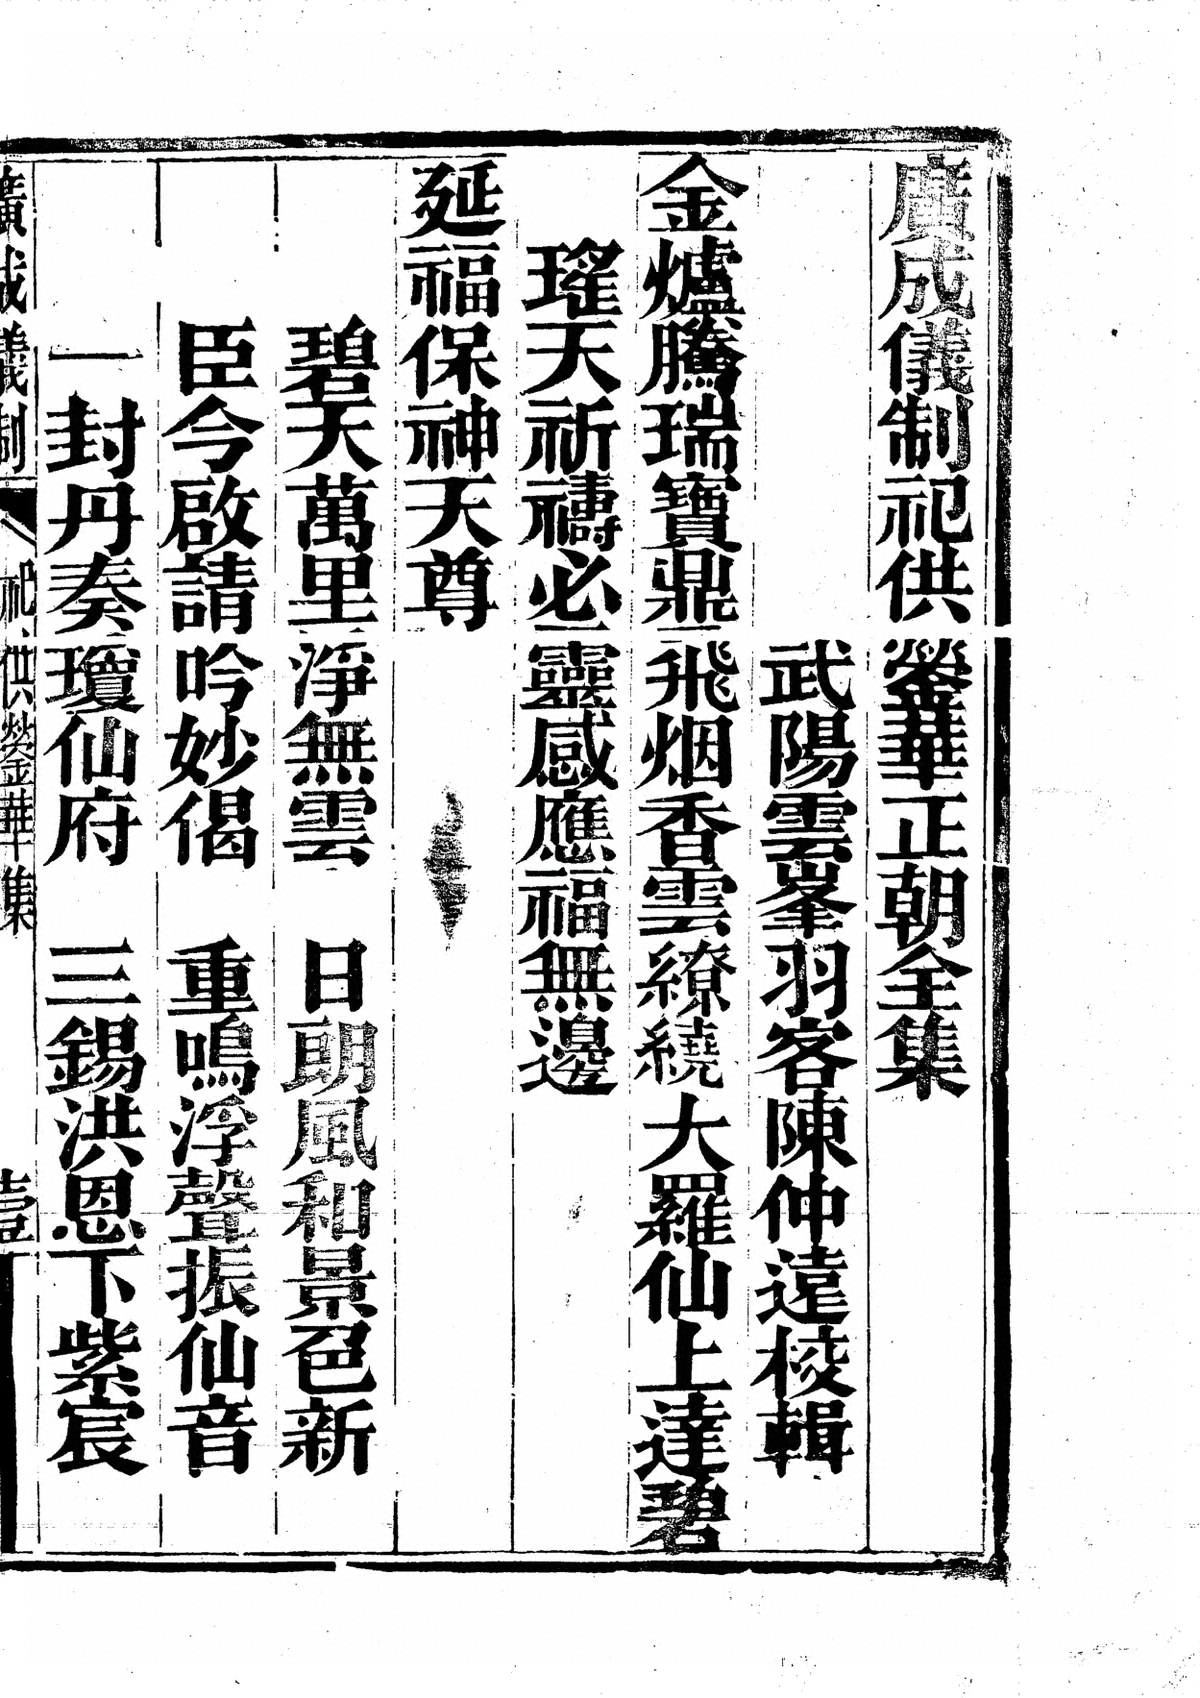 廣成儀制祀供鎣華正朝全集
武陽雲峯羽客陳仲遠校輯
金爐騰瑞寶鼎飛烟香雲繚繞大羅仙上達碧
瑤天祈禱必靈感應福無邊
延福保神天尊
碧天萬里淨無雲 日朗風和景色新
臣今啟請吟妙偈 重鳴浮聲振仙音
一封丹奏瓊仙府 三錫洪恩下紫宸
廣成儀制 祀供鎣華集 壹